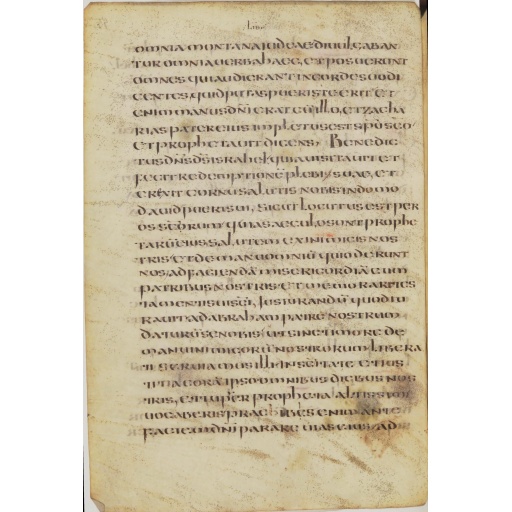 omniamontanaiudeaediuulgaban
turomniauerbahaec, etposuerunt
omnesquiaudierantincordesuodi
centes, quidputaspueristeerit et
enimmanusdn̄ieratcūillo, etzacha
riaspatereiusimpletusestsp̄usc̄o
etprophetauitdicens, benedic
tusdn̄sds̄israhel quiauisitauitet
fecitredemptionēplebi suae, et
erexit cornusalutis nobisindomo
dauidpuerisui, sicutlocutusestper
ossc̄orumquiasaeculosuntprophe
tarūeiussalutemexinimicisnos
trisetdemanuomniūquioderunt
nosadfaciendāmisericordiācum
patribusnostrisetmemorarites
tamentisuisc̄i, iusiurandūquodiu
rauitadabrahampatrēnostrum
daturūsenobis utsinetimorede
manuinimicorūnostrorumlibera
tiseruiamusilli insc̄itateetius
titiacorāipsoomnibusdiebusnos
tris, ettupuer prophetaaltissimi
uocaberis praeibisenimante
faciemdn̄i parareuiaseius, ad